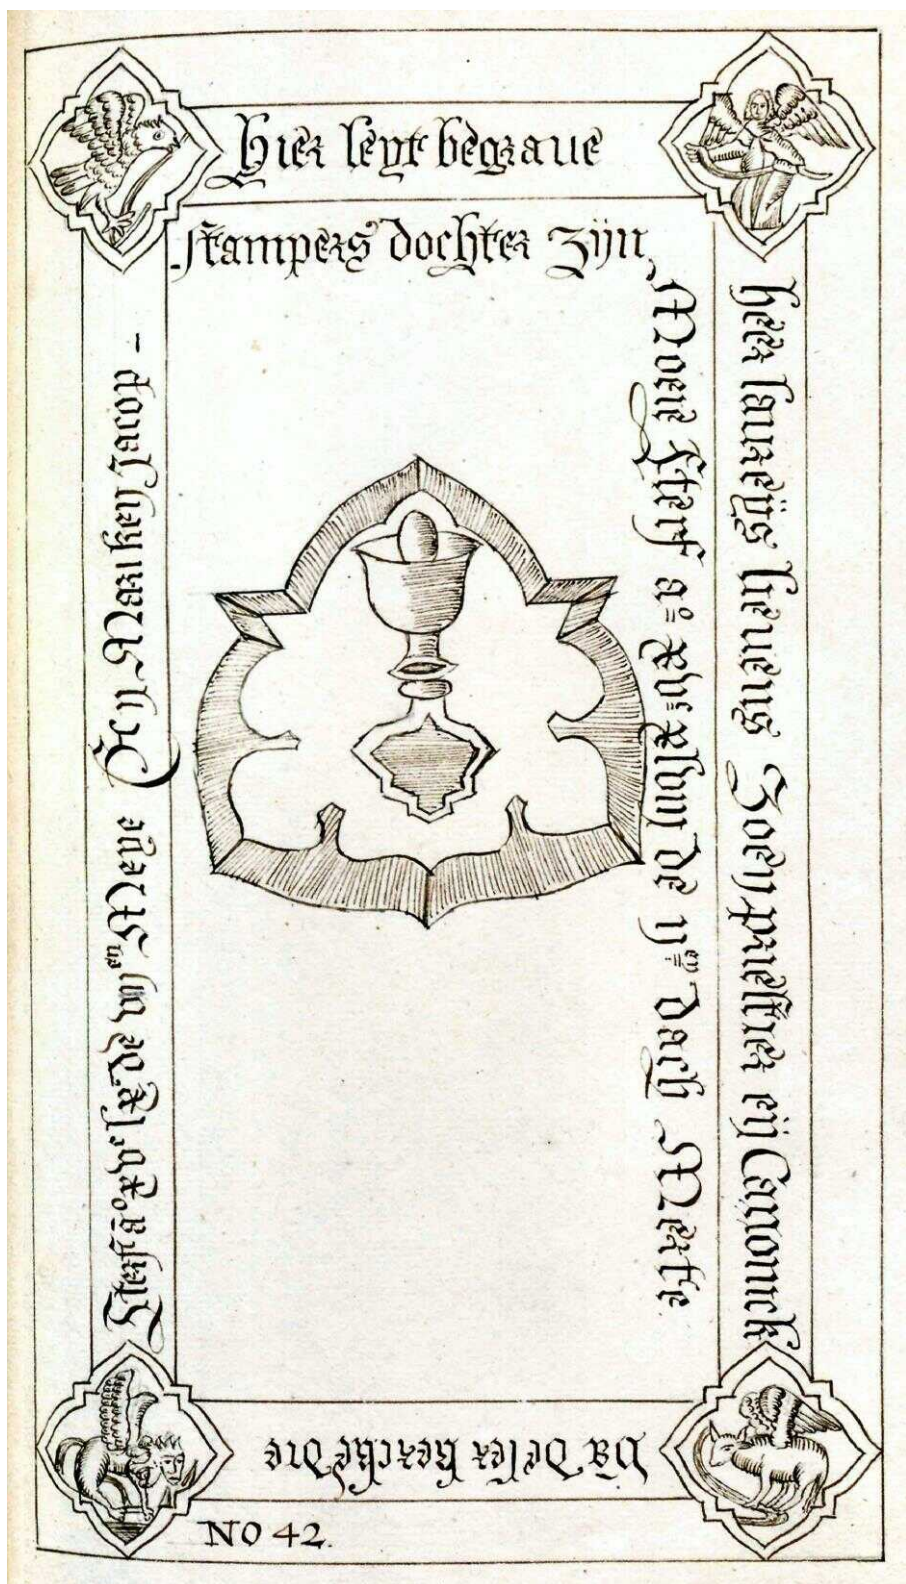 Hier leyt begraue
heer laureÿs lieuens Zoen priester eñ Canonick
Va Deser kercke Die
Sterf aº xvc. de Meye Eñ Mariken Jacop –
stampers dochter zijn
Moeie Sterf aº xvc xlviij de ijen dach Merte
NO 42.